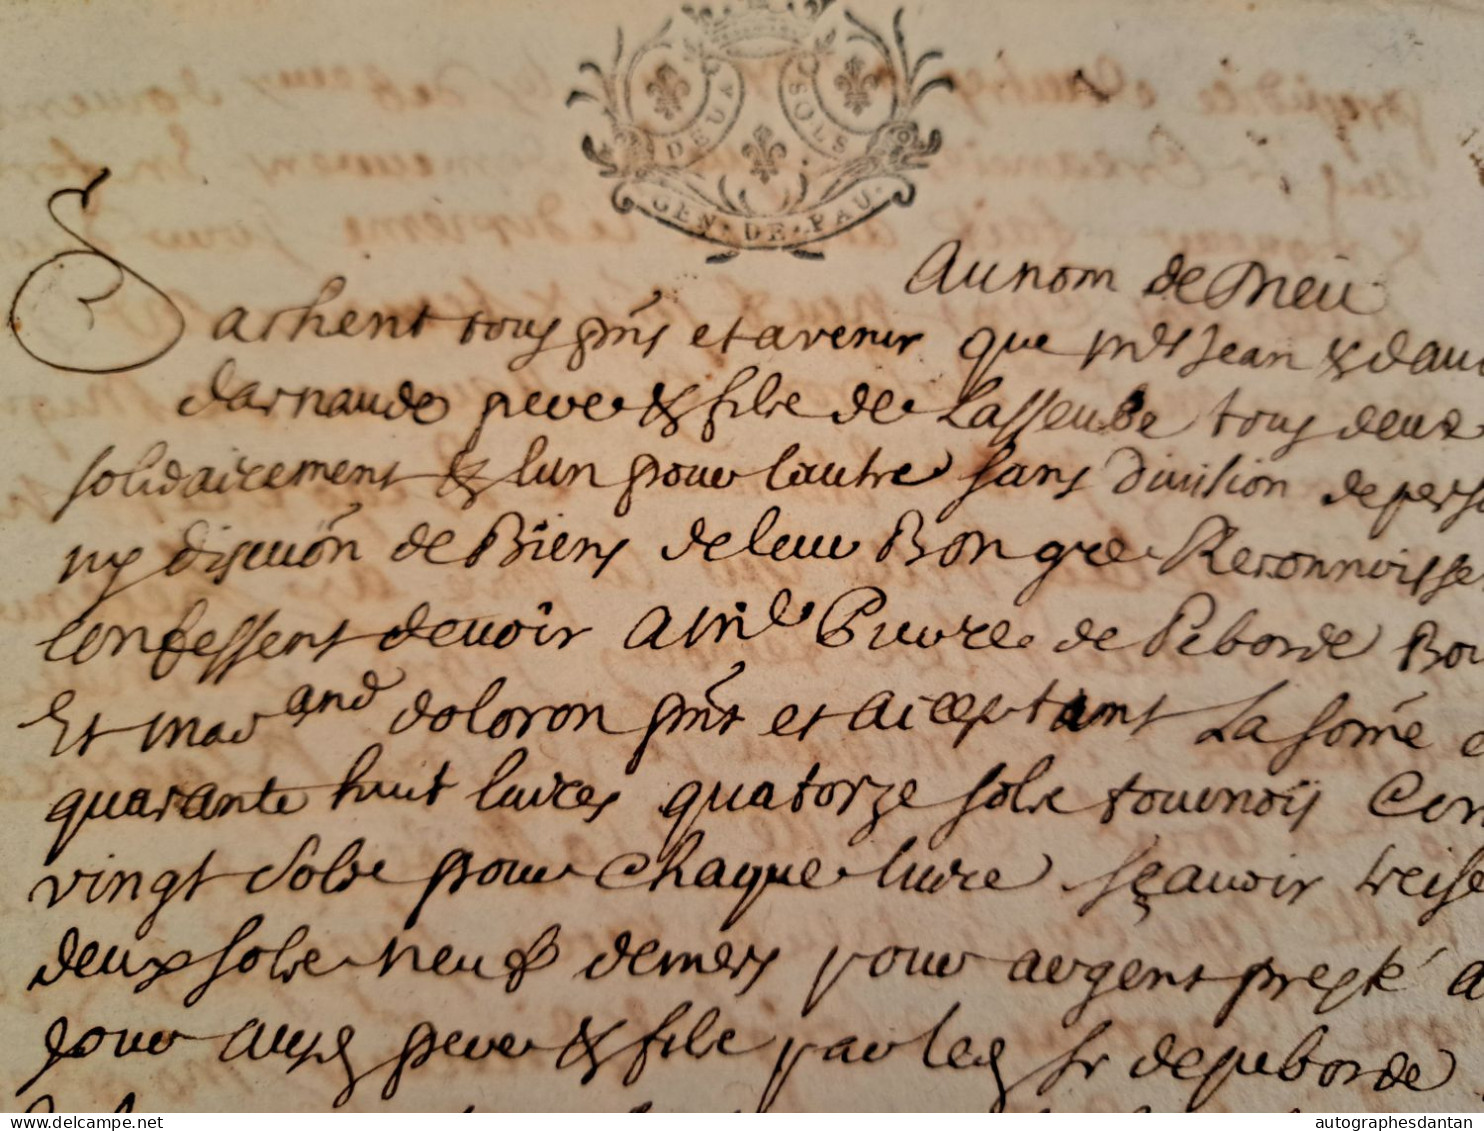 DEUX SOLS
GEN· DE· PAU·
Au nom de Dieu
Sachent tous pnts et avenir que mrs Jean & dau
darnaude pere & fils de Lasseube tous deux
solidairement & lun pour lautre sans division de perso
ny discuōn de Biens de leur Bon gre Reconnoisse
Confessent devoir a mr Pierre de Peborde Bou
Et marand doloron pnt et acceptant La some d
quarante huit livres quatorze sols tournois Con
vingt sols pour chaque livre sçavoir treise
deux sols neuf deniers pour argent presté a
jour ausd pere & fils par led sr de peborde
autographesdantan